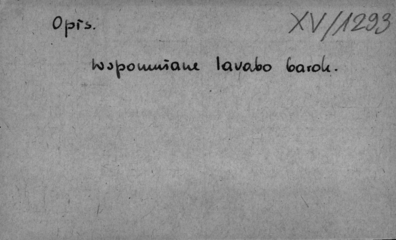 Opis. XV/1293
Wspomniane lavabo barok.